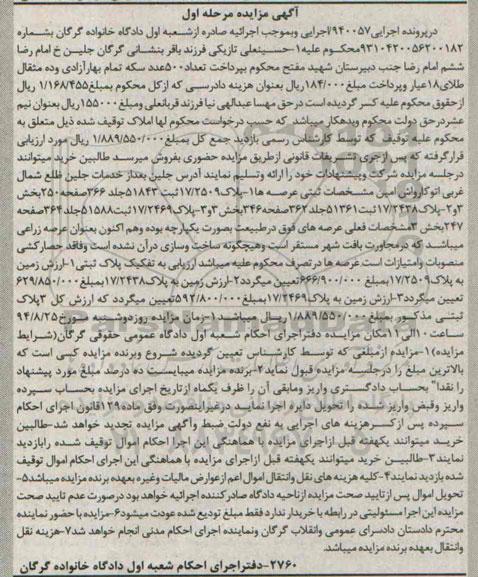 آگهی مزایده مرحله اول
درپرونده اجرایی۹۴۰۰۵۷اجرایی وبموجب اجرائیه صادره ازشعبه اول دادگاه خانواده گرگان بشماره
۹۳۱۰۴۲۰۰۵۶۲۰۰۱۸۲محکوم علیه۱-حسینعلی تازیکی فرزند باقر بنشانی گرگان جلین خ امام رضا
ششم امام رضا جنب دبیرستان شهید مفتح محکوم بپرداخت تعداد۵۰۰عدد سکه تمام بهارآزادی وده مثقال
طلای۱۸عیار وپرداخت مبلغ۱۸۴/۰۰۰ریال بعنوان هزینه دادرسی که ازکل محکوم بمبلغ۱/۱۶۸/۴۵۵ریال
ازحقوق محکوم علیه کسر گردیده است درحق مهسا عبدالهی نیا فرزند قربانعلی ومبلغ۱۵۵۰۰۰ریال بعنوان نیم
عشردرحق دولت ویدهکار میباشد که حسب درخواست محکوم لها املاک توقیف شده ذیل متعلق به
محکوم علیه توقیف که توسط کارشناس رسمی بازدید جمع کل بمبلغ۱/۸۸۹/۵۵۰/۰۰۰ ریال مورد ارزیابی
قرارگرفته که پس ازجری تشریفات قانونی ازطریق مزایده حضوری بفروش میرسد طالبین خرید میتوانند
درجلسه مزایده شرکت وپیشنهادات خود را ارائه وتسلیم نمایند آدرس جلین بعداز خدمات جلین ظلع شمال
غربی اتوکارواش امین مشخصات ثبتی عرصه ها۱-پلاک۱۷/۲۵۰۹ثبت۵۱۸۴۳جلد۳۶۶صفحه۲۵۰بخش
۳و۲-پلاک۱۷/۲۴۳۸ثبت۵۱۳۶۱جلد۳۶۲صفحه۳۴۶بخش۳و۳-پلاک۱۷/۲۴۶۹ثبت۵۱۵۸۸جلد۳۶۴صفحه
۲۴۷بخش۳مشخصات فعلی عرصه های فوق درطبیعت بصورت یکپارچه بوده وهم اکنون بعنوان عرصه زراعی
میباشد که درمجاورت بافت شهر مستقر است وهیچگونه ساخت وسازی درآن نشده است وفاقد حصارکشی
منصوبات وامتیازات است عرصه ها درتصرف محکوم علیه میباشد ارزیابی به تفکیک پلاک ثبتی۱-ارزش زمین
به پلاک۱۷/۲۵۰۹بمبلغ ۶۶۶/۹۰۰/۰۰۰تعیین میگردد۲-ارزش زمین به پلاک۱۷/۲۴۳۸بمبلغ۶۲۹/۸۵۰/۰۰۰
تعیین میگردد۳-ارزش زمین به پلاک۱۷/۲۴۶۹بمبلغ۵۹۲/۸۰۰/۰۰۰تعیین میگردد که ارزش کل ۳پلاک
ثبتی مذکور بمبلغ ۱/۸۸۹/۵۵۰/۰۰۰ریال میباشد۱-زمان مزایده روزدوشنبه مورخ۹۴/۸/۲۵
ساعت۱۰الی۱۱مکان مزایده دفتراجرای احکام شعبه اول دادگاه عمومی حقوقی گرگان(شرایط
مزایده)۱-مزایده ازمبلغی که توسط کارشناس تعیین گردیده شروع وبرنده مزایده کسی است که
بالاترین مبلغ را درجلسه مزایده قبول نماید۲-برنده مزایده میبایست ده درصد مبلغ مورد پیشنهاد
را نقدا" بحساب دادگستری واریز ومابقی آن را ظرف یکماه ازتاریخ اجرای مزایده بحساب سپرده
واریز وقبض واریز شده را تحویل دایره اجرا نماید درغیراینصورت وفق ماده۱۲۹قانون اجرای احکام
سپرده پس ازکسرهزینه های اجرایی به نفع دولت ضبط وآگهی مزایده تجدید خواهد شد-طالبین
خرید میتوانند یکهفته قبل ازاجرای مزایده با هماهنگی این اجرا احکام اموال توقیف شده رابازدید
نمایند۳-طالبین خرید میتوانند یکهفته قبل ازاجرای مزایده با هماهنگی این اجرای احکام اموال توقیف
شده بازدید نمایند۴-کلیه هزینه های نقل وانتقال اموال اعم ازعوارض مالیات وغیره بعهده برنده مزایده میباشد۵-
تحویل اموال پس ازتایید صحت مزایده ازناحیه دادگاه صادرکننده اجرائیه خواهد بود درصورت عدم تایید صحت
مزایده این اجرا مسئولیتی در رابطه با خریدار ندارد فقط مبلغ تودیع شده عودت میشود۶-مزایده با حضور نماینده
محترم دادستان دادسرای عمومی وانقلاب گرگان ونماینده اجرای احکام مدنی انجام خواهد شد۷-هزینه نقل
وانتقال بعهده برنده مزایده میباشد.
۲۷۶۰-دفتراجرای احکام شعبه اول دادگاه خانواده گرگان